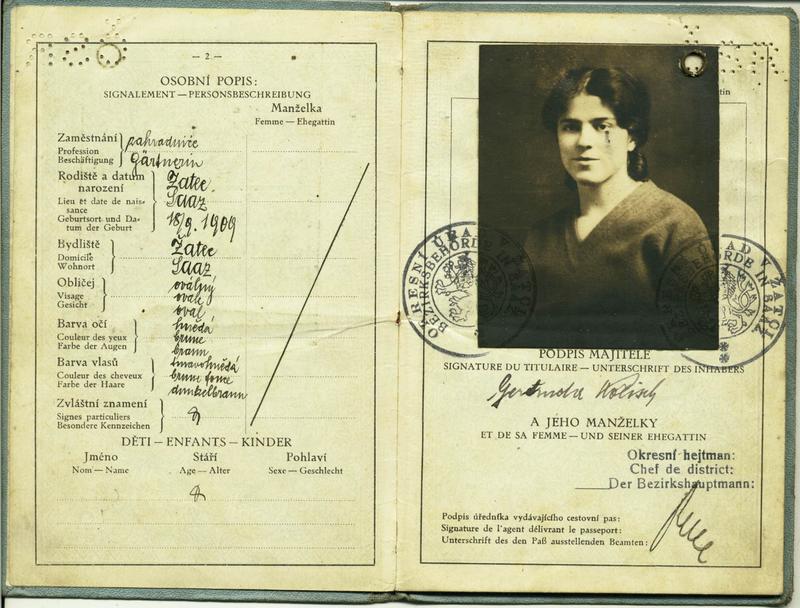 — 2 —
OSOBNÍ POPIS:
SIGNALEMENT — PERSONSBESCHREIBUNG
Manželka
Femme — Ehegattin
Zaměstnání
Profession
Beschäftigung
zahradnice
Gärtnerin
Rodiště a datum
narození
Lieu et date de nais-
sance
Geburtsort und Da-
tum der Geburt
Žatec
Saaz
18/9. 1909
Bydliště
Domicile
Wohnort
Žatec
Saaz
Obličej
Visage
Gesicht
oválný
ovale
oval
Barva očí
Couleur des yeux
Farbe der Augen
hnědá
brune
braun
Barva vlasů
Couleur des cheveux
Farbe der Haare
tmavohnědá
brune foncé
dunkelbraun
Zvláštní znamení
Signes particuliers
Besondere Kennzeichen
DĚTI — ENFANTS — KINDER
Jméno
Nom — Name
Stáří
Age — Alter
Pohlaví
Sexe — Geschlecht
ttin
OKRESNÍ ÚŘAD V ŽATCI
BEZIRKSBEHÖRDE IN SAAZ
ÚŘAD V ŽATCI
BEHÖRDE IN SAAZ
PODPIS MAJITELE
SIGNATURE DU TITULAIRE — UNTERSCHRIFT DES INHABERS
Gertruda Kolisch
A JEHO MANŽELKY
ET DE SA FEMME — UND SEINER EHEGATTIN
Okresní hejtman:
Chef de district:
Der Bezirkshauptmann:
Podpis úředníka vydávajícího cestovní pas:
Signature de l'agent délivrant le passeport:
Unterschrift des den Paß ausstellenden Beamten: